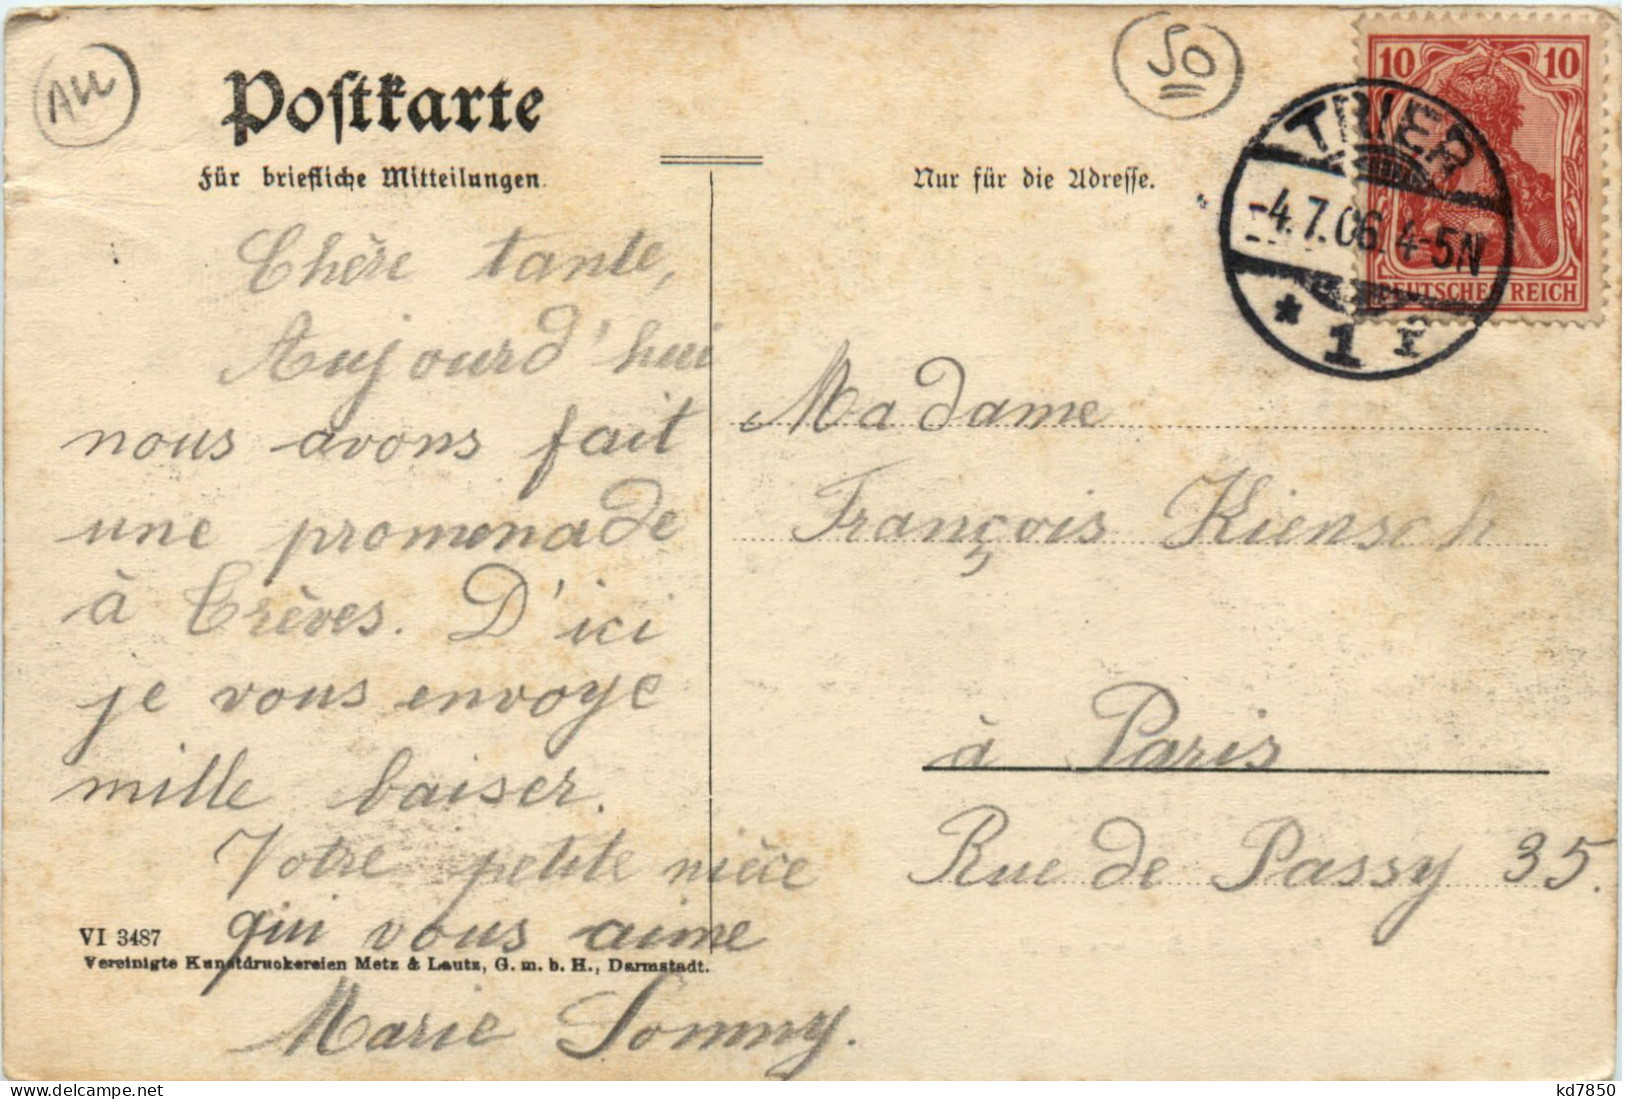 AK
50
Postkarte
Für briefliche Mitteilungen.
Nur für die Adresse.
10 10
DEUTSCHES REICH
TRIER
-4.7.06.4-5N
* 1 r
Chère tante,
Aujourd'hui
nous avons fait
une promenade
à Trèves. D'ici
je vous envoye
mille baiser.
Votre petite nièce
qui vous aime
Marie Sommy.
Madame
François Kiensch
à Paris
Rue de Passy 35.
VI 3487
Vereinigte Kunstdruckereien Metz & Lautz, G. m. b. H., Darmstadt.
www.delcampe.net
kd7850